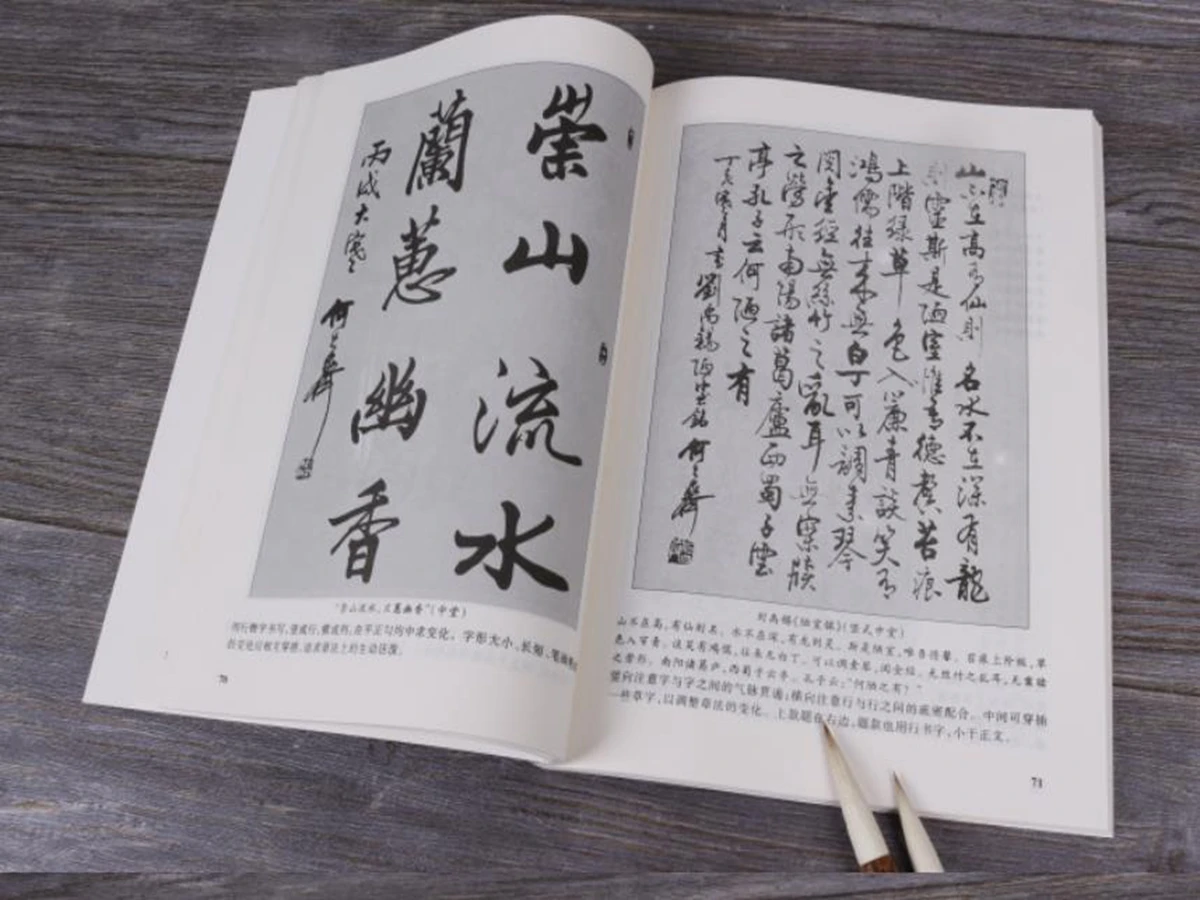 崇山流水
蘭蕙幽香
丙戌大寒
何
“崇山流水，兰蕙幽香”(中堂)
用行楷字书写，竖成行，横成列，在平正匀均中求变化。字形大小、长短、笔画
的变化应相互穿插，追求章法上的生动活泼。
70
山不在高有仙則名水不在深有龍
則靈斯是陋室惟吾德馨苔痕
上階緑草色入簾青談笑有
鴻儒往来無白丁可以調素琴
閲金經無絲竹之亂耳無案牘
之勞形南陽諸葛廬西蜀子雲
亭孔子云何陋之有
丁亥 月 書劉禹錫陋室銘 何
刘禹锡《陋室铭》(竖式中堂)
山不在高，有仙则名。水不在深，有龙则灵。斯是陋室，唯吾德馨。苔痕上阶绿，草
色入帘青。谈笑有鸿儒，往来无白丁。可以调素琴，阅金经。无丝竹之乱耳，无案牍
之劳形。南阳诸葛庐，西蜀子云亭。孔子云：“何陋之有？”
竖向注意字与字之间的气脉贯通；横向注意行与行之间的疏密配合。中间可穿插
一些草字，以调整章法的变化。上款题在右边，题款也用行书字，小于正文。
71